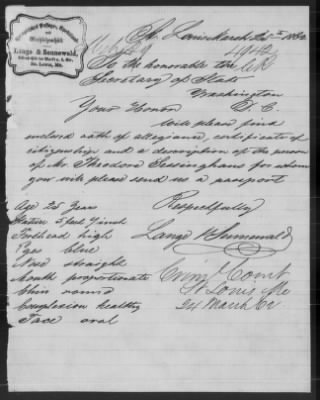 Lange & Sonnewald,
St. Louis, Mo.
St. Louis March 20th 186
4942
To the honorable the
Secretary of State
Washington
D. C.
Your Honor
Will please find
enclosed oath of allegiance, certificate of
citizenship and a description of the person
of Mr Theodore Sessinghaus for whom
you will please send us a passport
Respectfully
Lange & Sonnewald
Age 25 Years
Stature 5 feet 7 inch
Forehead high
Eyes blue
Nose straight
Mouth proportionate
Chin round
Complexion healthy
Face oval
Crim Court
St Louis Mo
24 March